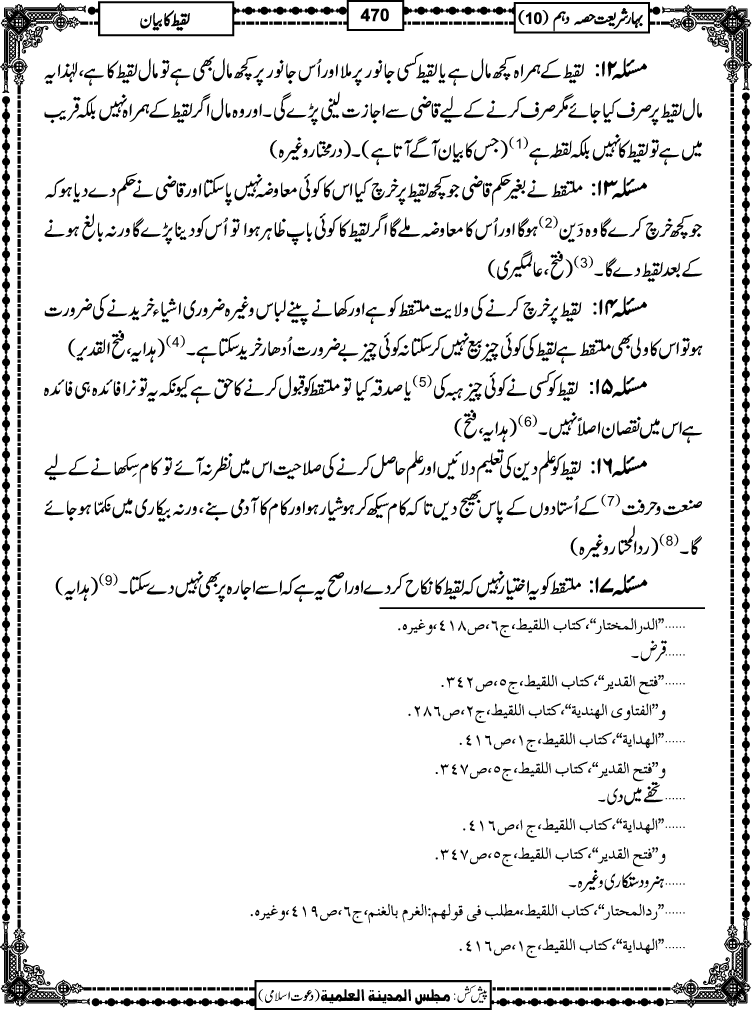 بہار شریعت حصہ دہم (10)
470
لقیط کا بیان
مسئلہ ۱۲: لقیط کے ہمراہ کچھ مال ہے یا لقیط کسی جانور پر ملا اور اُس جانور پر کچھ مال بھی ہے تو مال لقیط کا ہے، لہٰذا یہ
مال لقیط پر صرف کیا جائے مگر صرف کرنے کے لیے قاضی سے اجازت لینی پڑے گی۔ اور وہ مال اگر لقیط کے ہمراہ نہیں بلکہ قریب
میں ہے تو لقیط کا نہیں بلکہ لقطہ ہے(1) (جس کا بیان آگے آتا ہے)۔ (درمختار وغیرہ)
مسئلہ ۱۳: ملتقط نے بغیر حکم قاضی جو کچھ لقیط پر خرچ کیا اس کا کوئی معاوضہ نہیں پا سکتا اور قاضی نے حکم دے دیا ہو کہ
جو کچھ خرچ کرے گا وہ دَین(2) ہو گا اور اُس کا معاوضہ ملے گا اگر لقیط کا کوئی باپ ظاہر ہوا تو اُس کو دینا پڑے گا ورنہ بالغ ہونے
کے بعد لقیط دے گا۔(3) (فتح، عالمگیری)
مسئلہ ۱۴: لقیط پر خرچ کرنے کی ولایت ملتقط کو ہے اور کھانے پینے لباس وغیرہ ضروری اشیاء خریدنے کی ضرورت
ہو تو اس کا ولی بھی ملتقط ہے لقیط کی کوئی چیز بیع نہیں کر سکتا نہ کوئی چیز بے ضرورت اُدھار خرید سکتا ہے۔(4) (ہدایہ، فتح القدیر)
مسئلہ ۱۵: لقیط کو کسی نے کوئی چیز ہبہ کی(5) یا صدقہ کیا تو ملتقط کو قبول کرنے کا حق ہے کیونکہ یہ تو نرا فائدہ ہی فائدہ
ہے اس میں نقصان اصلاً نہیں۔(6) (ہدایہ، فتح)
مسئلہ ۱۶: لقیط کو علم دین کی تعلیم دلائیں اور علم حاصل کرنے کی صلاحیت اس میں نظر نہ آئے تو کام سِکھانے کے لیے
صنعت و حرفت(7) کے اُستادوں کے پاس بھیج دیں تاکہ کام سیکھ کر ہوشیار ہو اور کام کا آدمی بنے، ورنہ بیکاری میں نکمّا ہو جائے
گا۔(8) (ردالمحتار وغیرہ)
مسئلہ ۱۷: ملتقط کو یہ اختیار نہیں کہ لقیط کا نکاح کر دے اور اصح یہ ہے کہ اسے اجارہ پر بھی نہیں دے سکتا۔(9) (ہدایہ)
......”الدرالمختار“،کتاب اللقیط،ج٦،ص٤١٨،وغیرہ.
......قرض۔
......”فتح القدیر“،کتاب اللقیط،ج٥،ص٣٤٢.
و”الفتاوی الھندیة“،کتاب اللقیط،ج٢،ص٢٨٦.
......”الھدایة“،کتاب اللقیط،ج١،ص٤١٦.
و”فتح القدیر“،کتاب اللقیط،ج٥،ص٣٤٧.
......تحفے میں دی۔
......”الھدایة“،کتاب اللقیط،ج١،ص٤١٦.
و”فتح القدیر“،کتاب اللقیط،ج٥،ص٣٤٧.
......ہنر و دستکاری وغیرہ۔
......”ردالمحتار“،کتاب اللقیط،مطلب فی قولھم:الغرم بالغنم،ج٦،ص٤١٩،وغیرہ.
......”الھدایة“،کتاب اللقیط،ج١،ص٤١٦.
پیش کش: مجلس المدینة العلمیة (دعوت اسلامی)